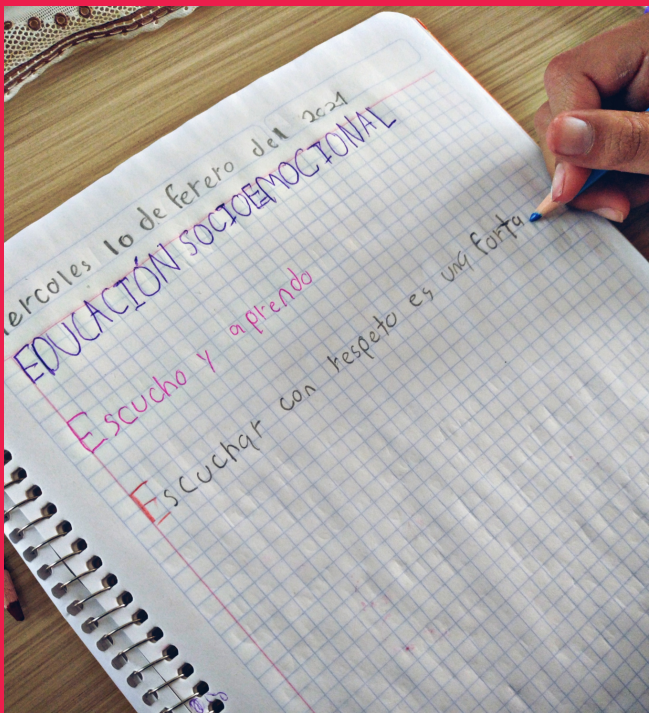 iercoles 10 de ferero del 2021
EDUCACIÓN SOCIOEMOCIONAL
Escucho y aprendo
Escuchar con respeto es una forta